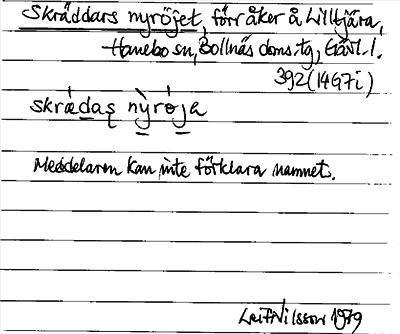 Skräddars nyröjet, förr åker å Lilltjära,
Hanebo sn, Bollnäs doms.tg, Gävl.l.
392 (14G7i)
skrǽdaş nỳrǿja
Meddelaren kan inte förklara namnet.
Leif Nilsson 1979